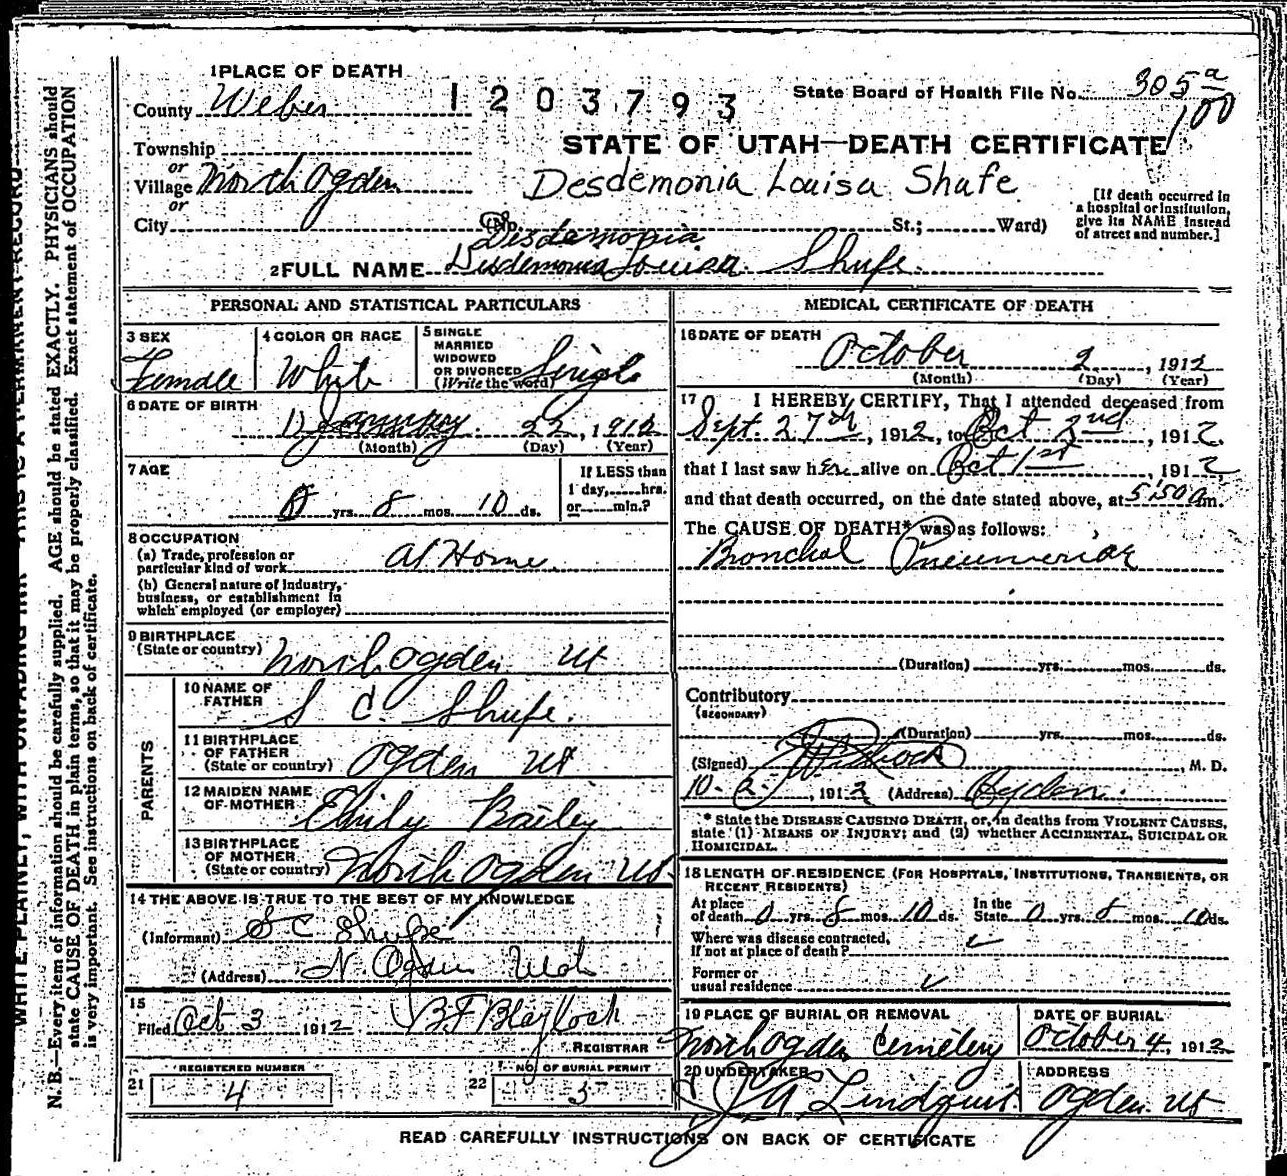 1 PLACE OF DEATH
County Weber
1203793
State Board of Health File No. 305 a
100
Township
or
Village North Ogden
or
City
STATE OF UTAH—DEATH CERTIFICATE
Desdemonia Louisa Shafe
(No. St.; Ward)
[If death occurred in
a hospital or institution,
give its NAME instead
of street and number.]
Desdemonia
2 FULL NAME Desdemonia Louisa Shupe
PERSONAL AND STATISTICAL PARTICULARS
3 SEX
Female
4 COLOR OR RACE
White
5 SINGLE
MARRIED
WIDOWED
OR DIVORCED
(Write the word) Single
6 DATE OF BIRTH
January 22, 1912
(Month) (Day) (Year)
7 AGE
0 yrs. 8 mos. 10 ds.
If LESS than
1 day, hrs.
or min.?
8 OCCUPATION
(a) Trade, profession or
particular kind of work At Home
(b) General nature of industry,
business, or establishment in
which employed (or employer)
9 BIRTHPLACE
(State or country) North Ogden Ut
PARENTS
10 NAME OF
FATHER S C. Shupe.
11 BIRTHPLACE
OF FATHER
(State or country) Ogden Ut
12 MAIDEN NAME
OF MOTHER Emily Baily
13 BIRTHPLACE
OF MOTHER
(State or country) North Ogden Ut
14 THE ABOVE IS TRUE TO THE BEST OF MY KNOWLEDGE
(Informant) S C Shupe
(Address) N. Ogden Utah
15
Filed Oct 3 1912 B.F Blaylock
REGISTRAR
REGISTERED NUMBER
21 4
NO. OF BURIAL PERMIT
22 3
MEDICAL CERTIFICATE OF DEATH
16 DATE OF DEATH
October 2, 1912
(Month) (Day) (Year)
17 I HEREBY CERTIFY, That I attended deceased from
Sept. 27th, 1912, to Oct 2nd, 1912.
that I last saw her alive on Oct 1st 1912
and that death occurred, on the date stated above, at 5:50 a m.
The CAUSE OF DEATH* was as follows:
Bronchal Pneumoniae
(Duration) yrs. mos. ds.
Contributory
(SECONDARY)
(Duration) yrs. mos. ds.
(Signed) M. D.
10-2, 1912 (Address) Ogden.
* State the DISEASE CAUSING DEATH, or, in deaths from VIOLENT CAUSES,
state (1) MEANS OF INJURY; and (2) whether ACCIDENTAL, SUICIDAL OR
HOMICIDAL.
18 LENGTH OF RESIDENCE (FOR HOSPITALS, INSTITUTIONS, TRANSIENTS, OR
RECENT RESIDENTS)
At place
of death 0 yrs. 8 mos. 10 ds.
In the
State 0 yrs. 8 mos. 10 ds.
Where was disease contracted,
if not at place of death?
Former or
usual residence
19 PLACE OF BURIAL OR REMOVAL
North Ogden Cemetery
DATE OF BURIAL
October 4, 1912
20 UNDERTAKER
Lindquist
ADDRESS
Ogden Ut
READ CAREFULLY INSTRUCTIONS ON BACK OF CERTIFICATE
WRITE PLAINLY, WITH UNFADING INK—THIS IS A PERMANENT RECORD
N. B.—Every item of information should be carefully supplied. AGE should be stated EXACTLY. PHYSICIANS should
state CAUSE OF DEATH in plain terms, so that it may be properly classified. Exact statement of OCCUPATION
is very important. See instructions on back of certificate.